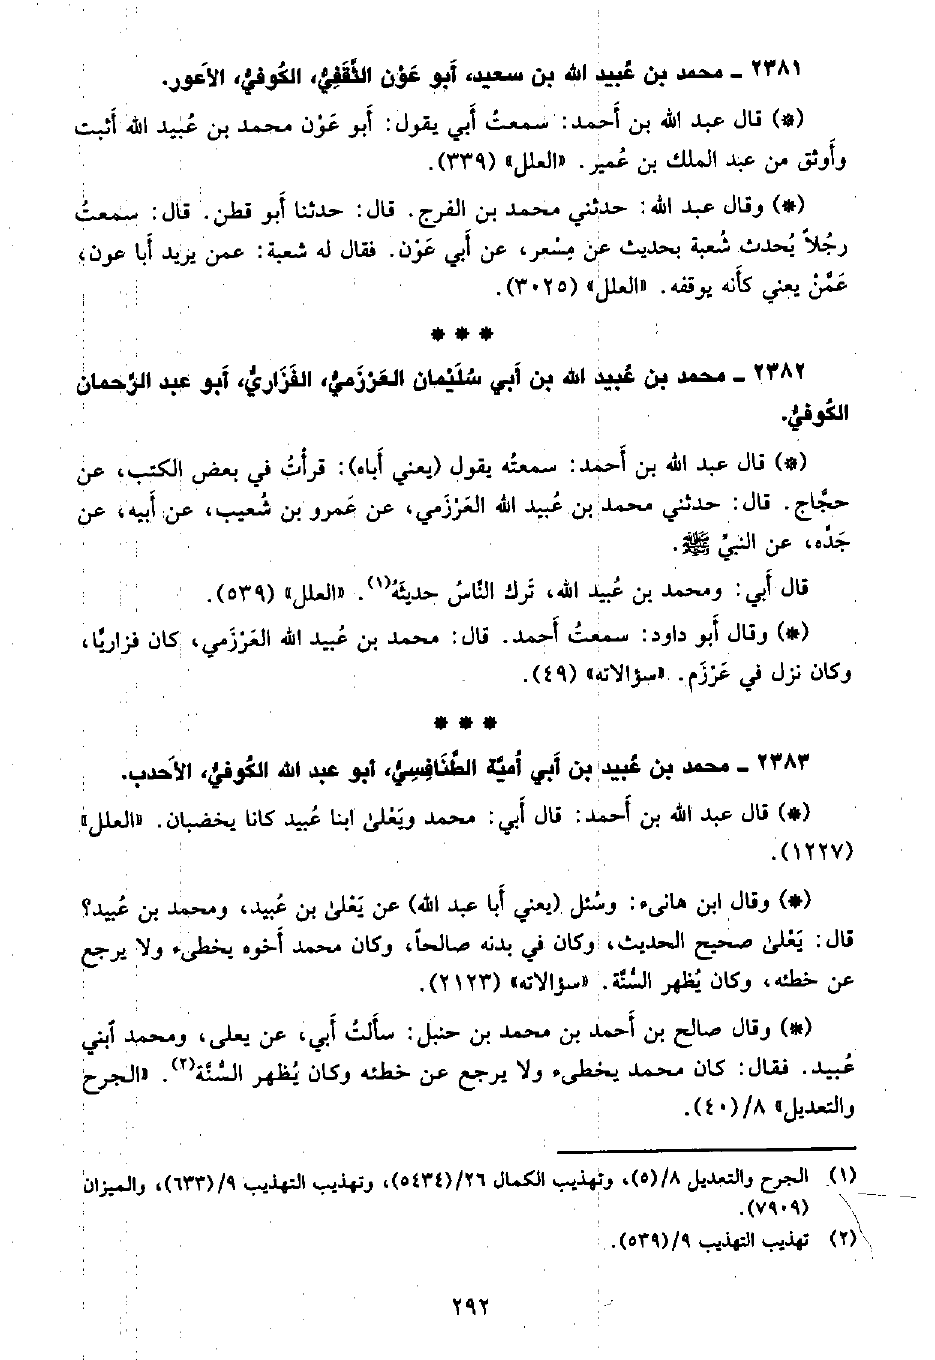 ٢٣٨١ ـ محمد بن عُبيد الله بن سعيد، أبو عَوْن الثَّقَفِيُّ، الكُوفيُّ، الأعور.
(*) قال عبد الله بن أَحمد: سمعتُ أَبي يقول: أَبو عَوْن محمد بن عُبيد الله أَثبت
وأَوثق من عبد الملك بن عُمير. «العلل» (٣٣٩).
(*) وقال عبد الله: حدثني محمد بن الفرج. قال: حدثنا أَبو قطن. قال: سمعتُ
رجُلاً يُحدث شُعبة بحديث عن مِسْعر، عن أَبي عَوْن. فقال له شعبة: عمن يريد أَبا عون،
عَمَّنْ يعني كأَنه يوقفه. «العلل» (٣٠٢٥).
* * *
٢٣٨٢ ـ محمد بن عُبيد الله بن أَبي سُلَيْمان العَرْزَميُّ، الفَزَاريُّ، أبو عبد الرَّحمان
الكُوفيُّ.
(*) قال عبد الله بن أَحمد: سمعتُه يقول (يعني أَباه): قرأتُ في بعض الكتب، عن
حجَّاج. قال: حدثني محمد بن عُبيد الله العَرْزَمي، عن عَمرو بن شُعيب، عن أَبيه، عن
جَدِّه، عن النبيِّ ﷺ.
قال أَبي: ومحمد بن عُبيد الله، تَرك النَّاسُ حديثَهُ(١). «العلل» (٥٣٩).
(*) وقال أَبو داود: سمعتُ أَحمد. قال: محمد بن عُبيد الله العَرْزَمي، كان فزاريًّا،
وكان نزل في عَرْزَم. «سؤالاته» (٤٩).
* * *
٢٣٨٣ ـ محمد بن عُبيد بن أبي أُميَّة الطَّنَافِسِيُّ، أبو عبد الله الكُوفيُّ، الأَحدب.
(*) قال عبد الله بن أَحمد: قال أَبي: محمد ويَعْلىٰ ابنا عُبيد كانا يخضبان. «العلل»
(١٢٢٧).
(*) وقال ابن هانىء: وسُئل (يعني أَبا عبد الله) عن يَعْلىٰ بن عُبيد، ومحمد بن عُبيد؟
قال: يَعْلىٰ صحيح الحديث، وكان في بدنه صالحاً، وكان محمد أَخوه يخطىء ولا يرجع
عن خطئه، وكان يُظهر السُّنَّة. «سؤالاته» (٢١٢٣).
(*) وقال صالح بن أَحمد بن محمد بن حنبل: سأَلتُ أَبي، عن يعلى، ومحمد ٱبني
عُبيد. فقال: كان محمد يخطىء ولا يرجع عن خطئه وكان يُظهر السُّنَّة(٢). «الجرح
والتعديل» ٨/(٤٠).
(١) الجرح والتعديل ٨/(٥)، وتهذيب الكمال ٢٦/(٥٤٣٤)، وتهذيب التهذيب ٩/(٦٣٣)، والميزان
(٧٩٠٩).
(٢) تهذيب التهذيب ٩/(٥٣٩).
٢٩٢